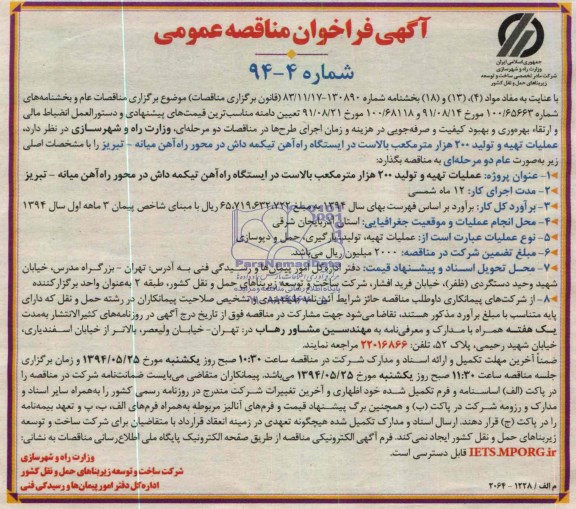 آگهی فراخوان مناقصه عمومی
شماره ۴-۹۴
جمهوری اسلامی ایران
وزارت راه و شهرسازی
شرکت مادر تخصصی ساخت و توسعه
زیربناهای حمل و نقل کشور
با عنایت به مفاد مواد (۴)، (۱۳) و (۱۸) بخشنامه شماره ۱۳۰۸۹۰-۸۳/۱۱/۱۷ (قانون برگزاری مناقصات) موضوع برگزاری مناقصات عام و بخشنامه‌های
شماره ۱۰۰/۶۵۶۶۳ مورخ ۹۱/۰۸/۱۴ و ۱۰۰/۶۸۱۱۸ مورخ ۹۱/۰۸/۲۱ تعیین دامنه مناسب‌ترین قیمت‌های پیشنهادی و دستورالعمل انضباط مالی
و ارتقاء بهره‌وری و بهبود کیفیت و صرفه‌جویی در هزینه و زمان اجرای طرح‌ها در مناقصات دو مرحله‌ای، وزارت راه و شهرسازی در نظر دارد،
عملیات تهیه و تولید ۲۰۰ هزار مترمکعب بالاست در ایستگاه راه‌آهن تیکمه داش در محور راه‌آهن میانه - تبریز را با مشخصات اصلی
زیر به‌صورت عام دو مرحله‌ای به مناقصه بگذارد:
۱- عنوان پروژه: عملیات تهیه و تولید ۲۰۰ هزار مترمکعب بالاست در ایستگاه راه‌آهن تیکمه داش در محور راه‌آهن میانه - تبریز
۲- مدت اجرای کار: ۱۲ ماه شمسی
۳- برآورد کل کار: برآورد بر اساس فهرست بهای سال ۱۳۹۴ به‌مبلغ ۶۵,۷۱۹,۶۳۲,۷۲۲ ریال با مبنای شاخص پیمان ۳ ماهه اول سال ۱۳۹۴
۴- محل انجام عملیات و موقعیت جغرافیایی: استان آذربایجان شرقی
۵- نوع عملیات عبارت است از: عملیات تهیه، تولید، بارگیری، حمل و دپوسازی
۶- مبلغ تضمین شرکت در مناقصه: ۲۰۰۰ میلیون ریال می‌باشد.
۷- محل تحویل اسناد و پیشنهاد قیمت: دفتر اداره‌کل امور پیمان‌ها و رسیدگی فنی به آدرس: تهران - بزرگراه مدرس، خیابان
شهید وحید دستگردی (ظفر)، خیابان فرید افشار، شرکت ساخت و توسعه زیربناهای حمل و نقل کشور، طبقه ۲ به‌عنوان واحد برگزارکننده
۸- از شرکت‌های پیمانکاری داوطلب مناقصه حائز شرایط آئین‌نامه تشخیص صلاحیت پیمانکاران در رشته حمل و نقل که دارای
پایه متناسب با مبلغ برآورد مذکور هستند، تقاضا می‌شود جهت مشارکت در مناقصه فوق از تاریخ درج آگهی در روزنامه‌های کثیرالانتشار به‌مدت
یک هفته همراه با مدارک و معرفی‌نامه به مهندسین مشاور رهاب در: تهران- خیابان ولیعصر، بالاتر از خیابان اسفندیاری،
خیابان شهید رحیمی، پلاک ۵۲، تلفن: ۲۲۰۱۶۸۶۶ مراجعه نمایند.
ضمناً آخرین مهلت تکمیل و ارائه اسناد و مدارک شرکت در مناقصه ساعت ۱۰:۳۰ صبح روز یکشنبه مورخ ۱۳۹۴/۰۵/۲۵ و زمان برگزاری
جلسه مناقصه ساعت ۱۱:۳۰ صبح روز یکشنبه مورخ ۱۳۹۴/۰۵/۲۵ می‌باشد. پیمانکاران متقاضی می‌بایست ضمانت‌نامه شرکت در مناقصه را
در پاکت (الف) اساسنامه و فرم تکمیل شده خود اظهاری و آخرین تغییرات شرکت مندرج در روزنامه رسمی کشور را به‌همراه سایر اسناد و
مدارک و رزومه شرکت در پاکت (ب) و همچنین برگ پیشنهاد قیمت و فرم‌های آنالیز مربوطه به‌همراه فرم‌های الف، ب، پ و تعهد بیمه‌نامه
را در پاکت (ج) قرار دهند. ارسال اسناد و مدارک تکمیل شده هیچگونه تعهدی در زمینه انعقاد قرارداد با متقاضیان برای شرکت ساخت و توسعه
زیربناهای حمل و نقل کشور ایجاد نمی‌کند. فرم آگهی الکترونیکی مناقصه از طریق صفحه الکترونیک پایگاه ملی اطلاع‌رسانی مناقصات به نشانی:
IETS.MPORG.ir قابل دسترسی است.
وزارت راه و شهرسازی
شرکت ساخت و توسعه زیربناهای حمل و نقل کشور
اداره کل دفتر امور پیمان‌ها و رسیدگی فنی
م الف / ۱۲۲۸ - ۲۰۶۴
ParsNamadData